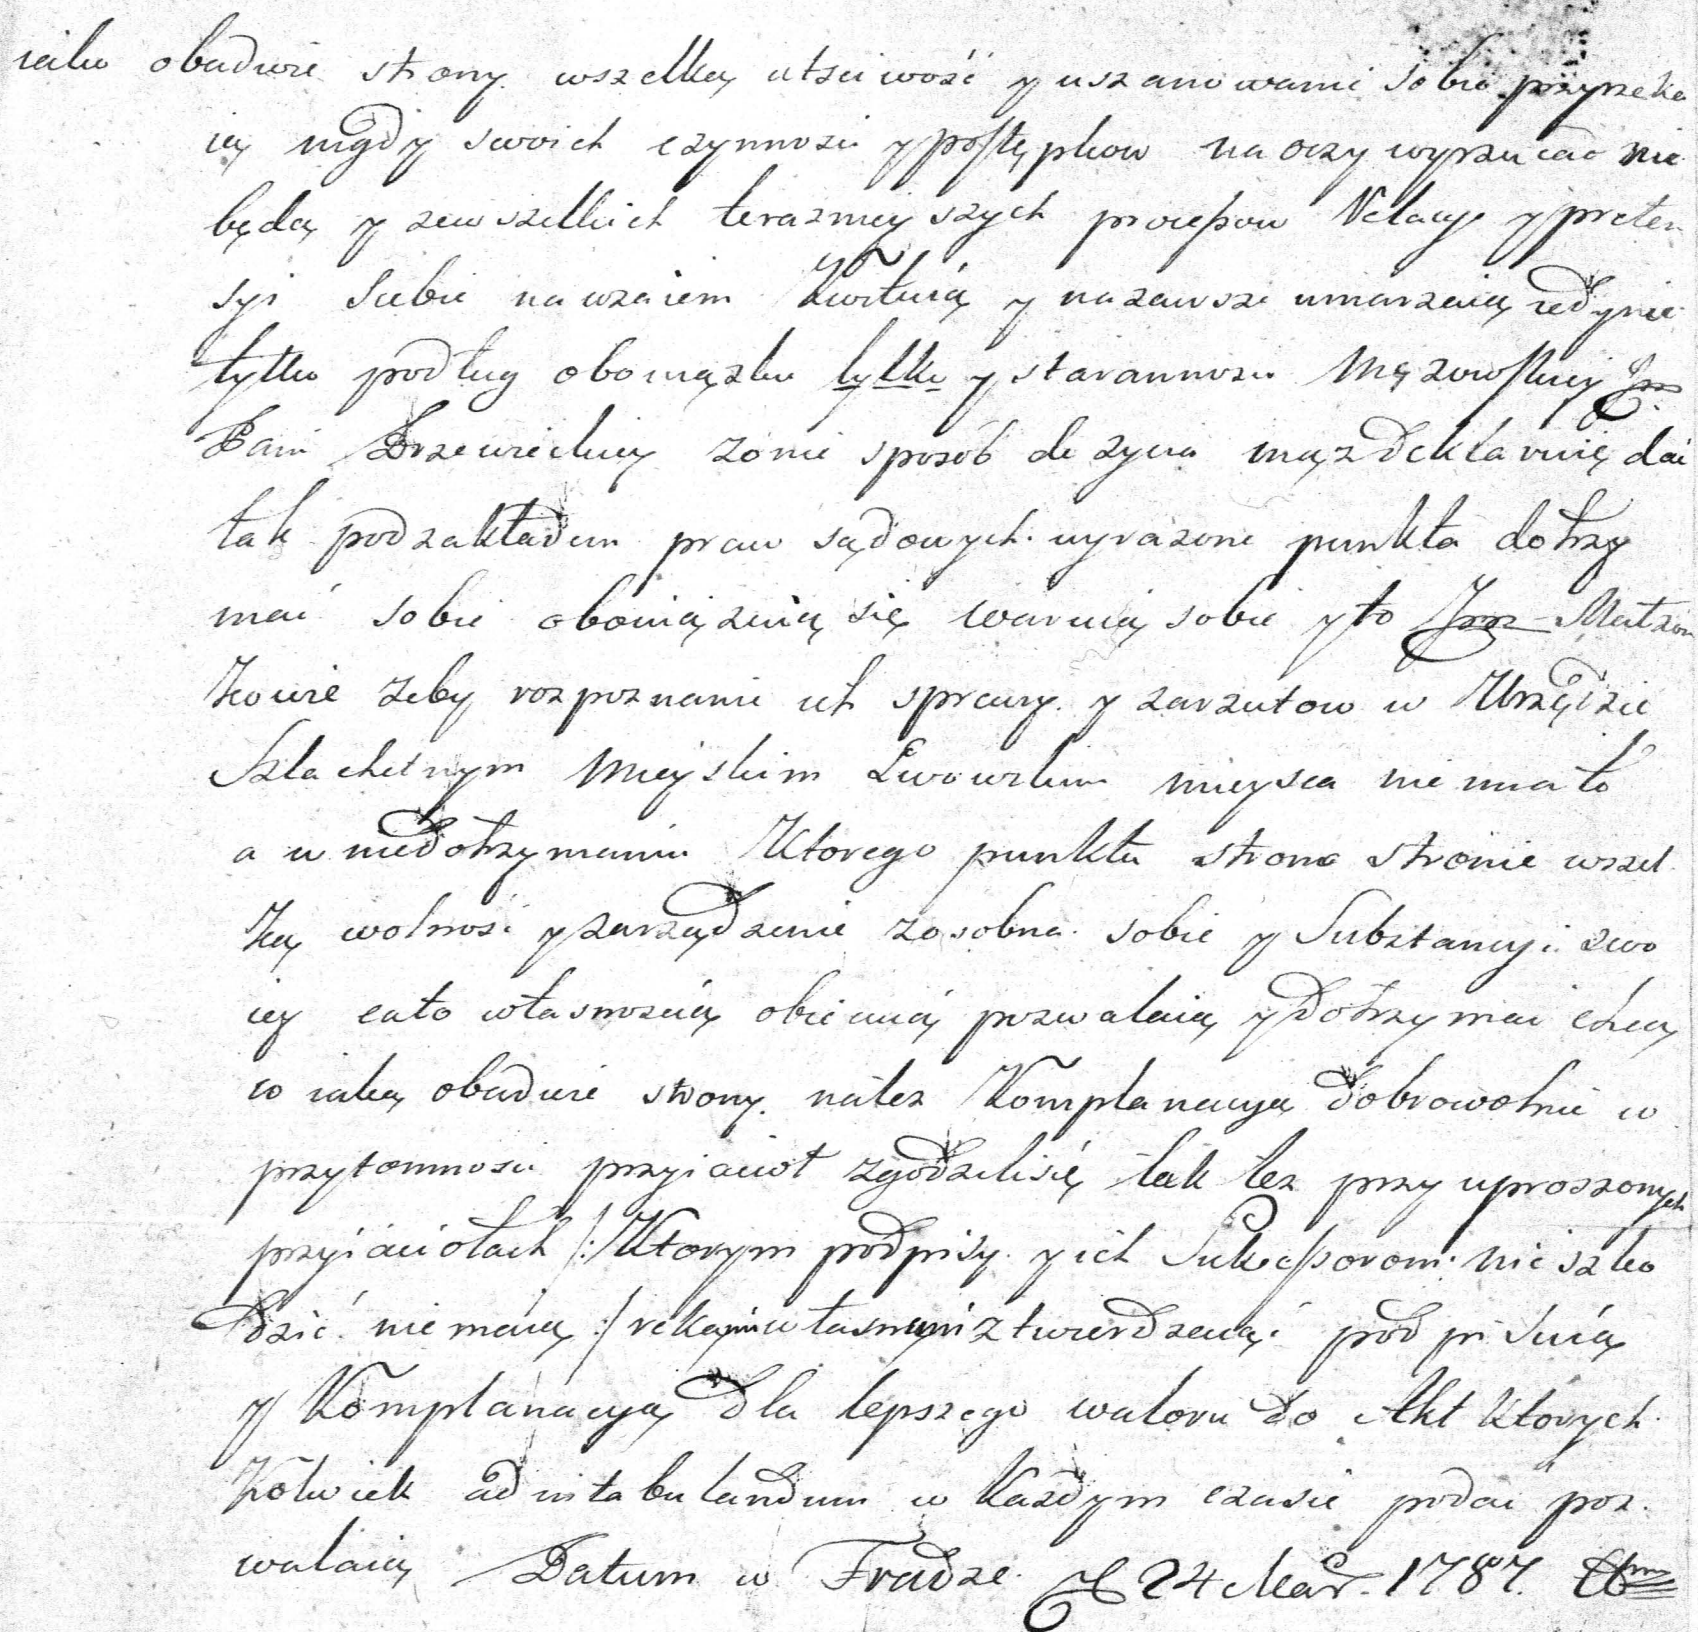 iako obudwie strony wszelką utsciwość y uszanowanie sobie przyrzeka
ią nigdy swoich czynnosci y postępkow na oczy wyrzucac nie
będą y zewszelkich teraznieyszych procesow Relacyi y preten
syi siebie nawzaiem Kwituią y nazawsze umarzaią iedynie
tylko podług obowiązku tylko y starannosci Mężowskiey Jm
Pani Drzewieckiey zonie sposób do zycia mąz deklaruię dać
tak podzakładem praw sądowych wyrazone punkta dotrzy
mać sobie obowiązuią się waruią sobie y to Jmm Małzon
kowie zeby rozpoznanie ich sprawy y zarzutow w Urzędzie
Szlachetnym Mieyskim Lwowskim mieysca nie miało
a w niedotrzymaniu Ktorego punktu strona stronie wszel
ką wolnosc y zarządzenie zosobna sobie y Substancyi swo
iey cało własnoscią obiecuią pozwalaią y dotrzymać chcą
w iaką obudwie strony nalez Komplanacyą dobrowolnie w
przytomnosci przyiacioł zgodzilisię tak tez przy uproszonych
przyiaciołach /: Ktorym podpisy y ich Sukcessorom nic szko
dzić nie maią :/ rękami własnymi ztwierdzaiąc podpisuią
y Komplanacyą dla lepszego waloru do Akt Ktorych
Kolwiek ad intabulandum w Kazdym czasie podać poz
walaią Datum w Fradze 24 Mar. 1787.